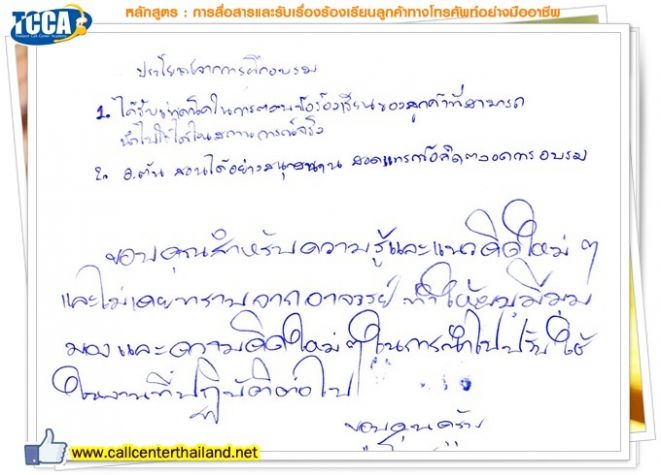 TCCA
Thailand Call Center Academy
หลักสูตร : การสื่อสารและรับเรื่องร้องเรียนลูกค้าทางโทรศัพท์อย่างมืออาชีพ
ประโยชน์จากการฝึกอบรม
1. ได้รับเทคนิคในการตอบข้อร้องเรียนของลูกค้าที่สามารถ
นำไปใช้ได้ในสถานการณ์จริง
2. อ.ต้น สอนได้อย่างสนุกสนาน สอดแทรกข้อคิดตลอดการอบรม
ขอบคุณสำหรับความรู้และแนวคิดใหม่ ๆ
และไม่เคยทราบจากอาจารย์ ทำให้ผมมีมุม
มองและความคิดใหม่ ๆ ในการนำไปปรับใช้
ในงานที่ปฏิบัติต่อไป
ขอบคุณครับ
www.callcenterthailand.net